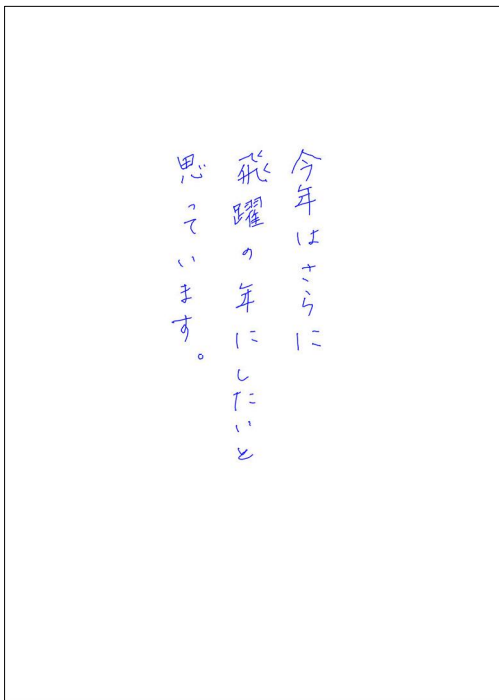 今年はさらに
飛躍の年にしたいと
思っています。